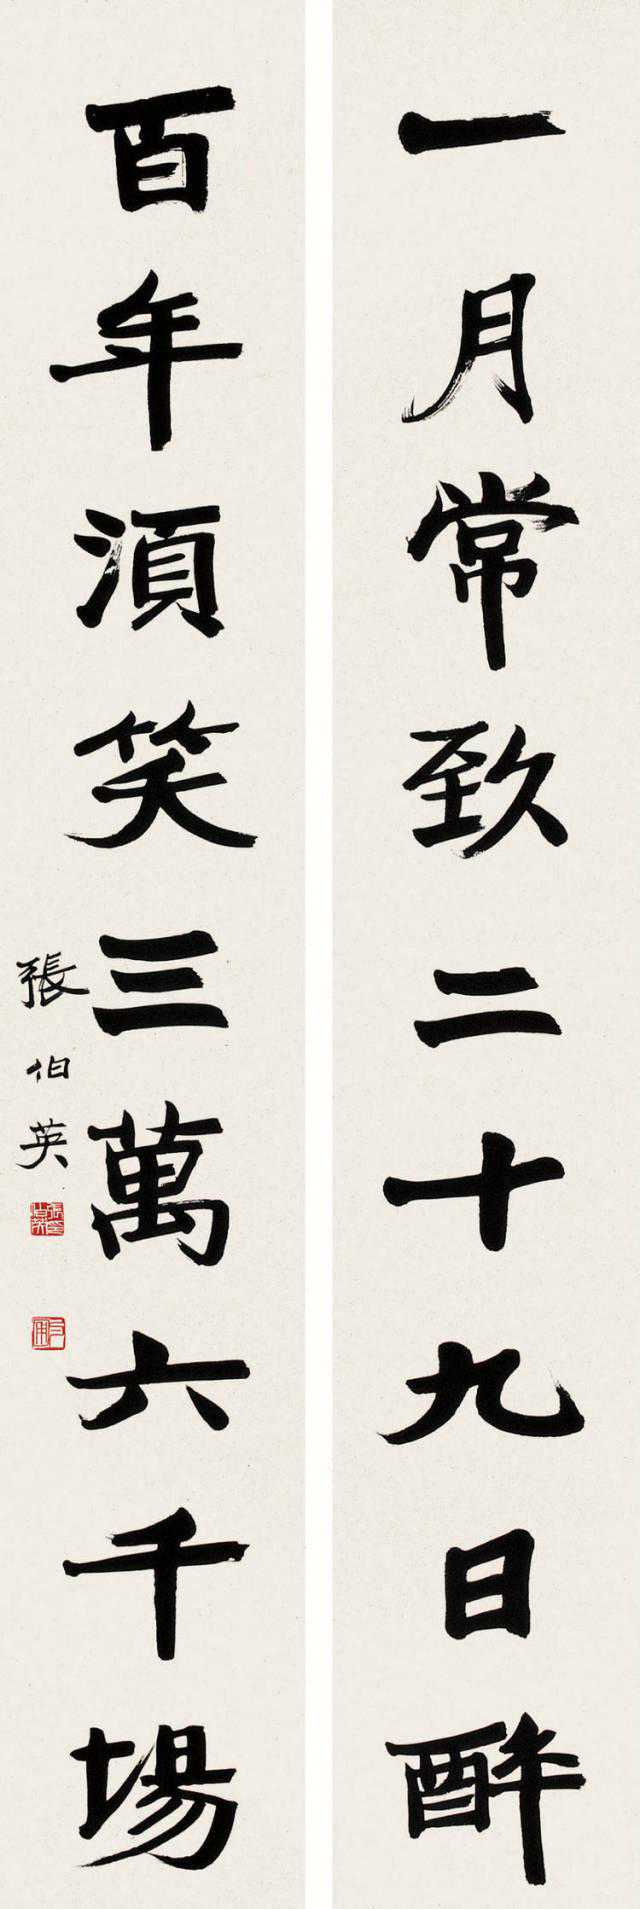 一月常致二十九日醉
百年須笑三萬六千場
張伯英